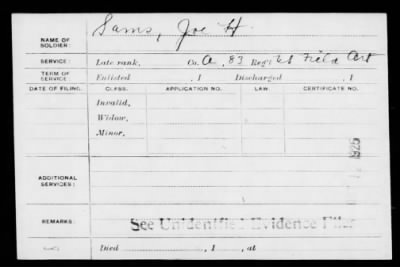 NAME OF SOLDIER: Sams, Joe H.
SERVICE: Late rank, Co. A, 83 Reg't Field Art
TERM OF SERVICE: Enlisted , 1 Discharged , 1
DATE OF FILING. CLASS. APPLICATION NO. LAW. CERTIFICATE NO.
Invalid,
Widow,
Minor,
ADDITIONAL SERVICES:
REMARKS: See Unidentified Evidence Files
Died , 1 , at